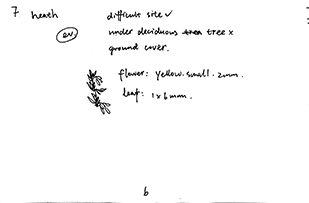 7 heath difficult site ✓
ev. under deciduous tree x
ground cover.
flower: yellow. small. 2mm.
leaf: 1x6mm.
6